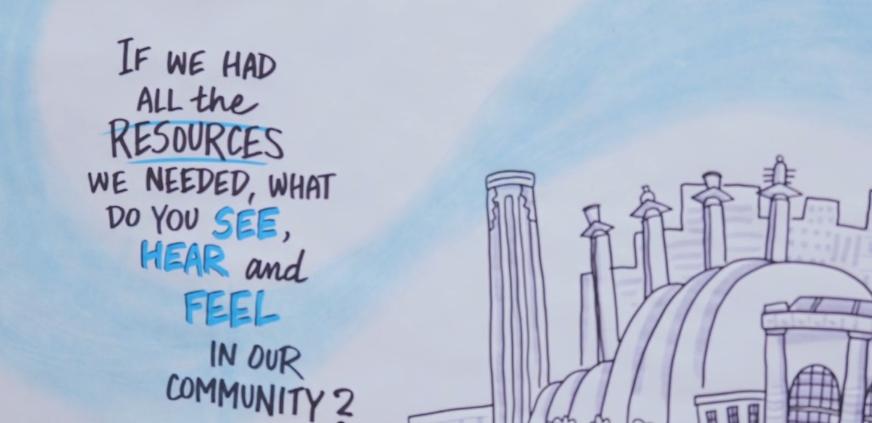 IF WE HAD
ALL the
RESOURCES
WE NEEDED, WHAT
DO YOU SEE,
HEAR and
FEEL
IN OUR
COMMUNITY?